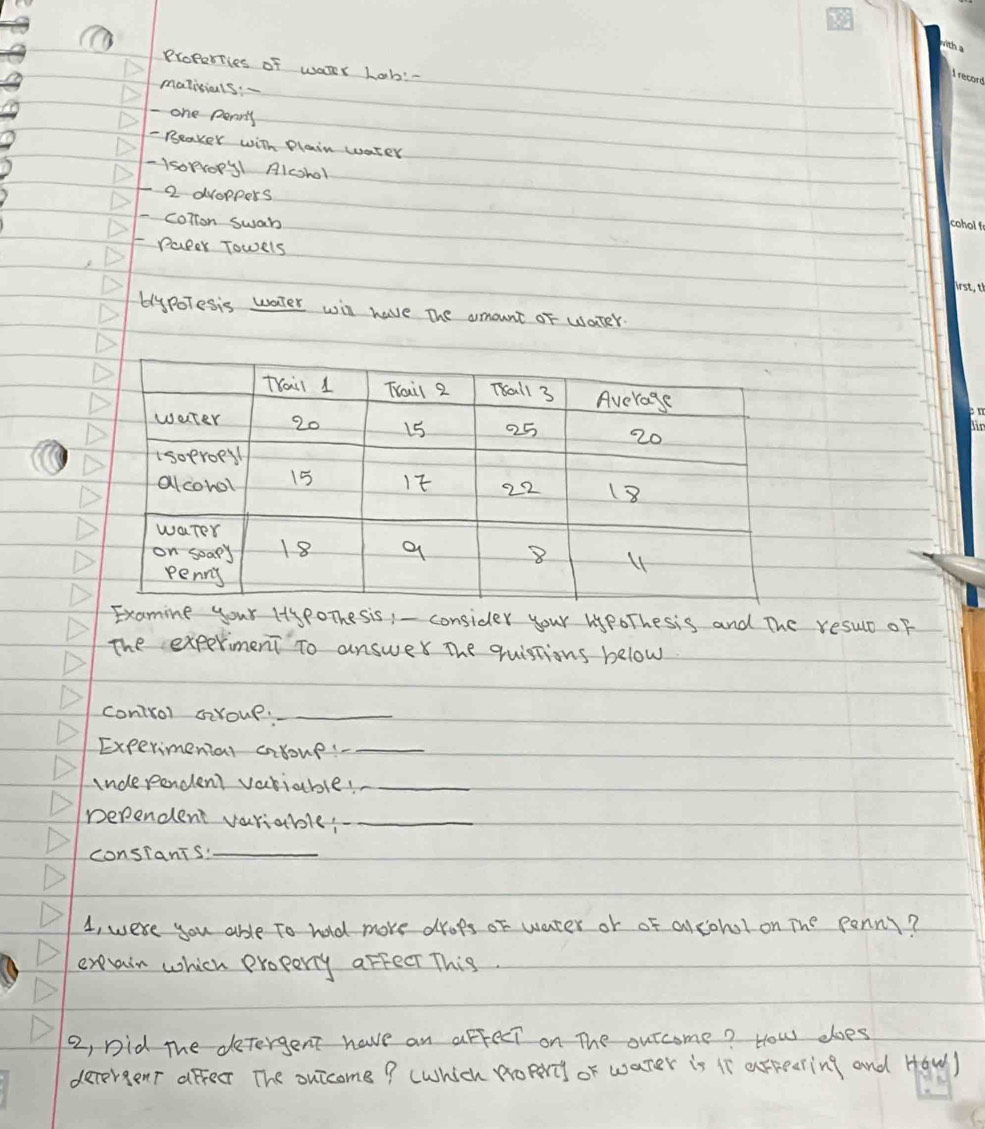 with a
Properties of water Lab:-
d record
Matirials:-
- one penny
- Beaker with Plain water
- Isopropyl Alcohol
- 2 droppers
- Cotton Swab
cohol f
- Paper Towels
irst, th
Hypotesis water will have The amount of water.
Trail 1 Trail 2 Trail 3 Average
water 20 15 25 20
isopropyl
alcohol 15 17 22 18
water
on soapy 18 9 8 11
penny
Examine your Hypothesis:- consider your hypothesis and The result of
The experiment To answer The quistions below.
Control Group:-
Experimental Group:-
independent variable:-
Dependent variable:-
constants:
1, were you able To hold more drops of water or of alcohol on The penny?
explain which property affect This.
2, Did The detergent have an affect on The outcome? How does
detergent affect The outcome? (which property of water is it affecting and How)